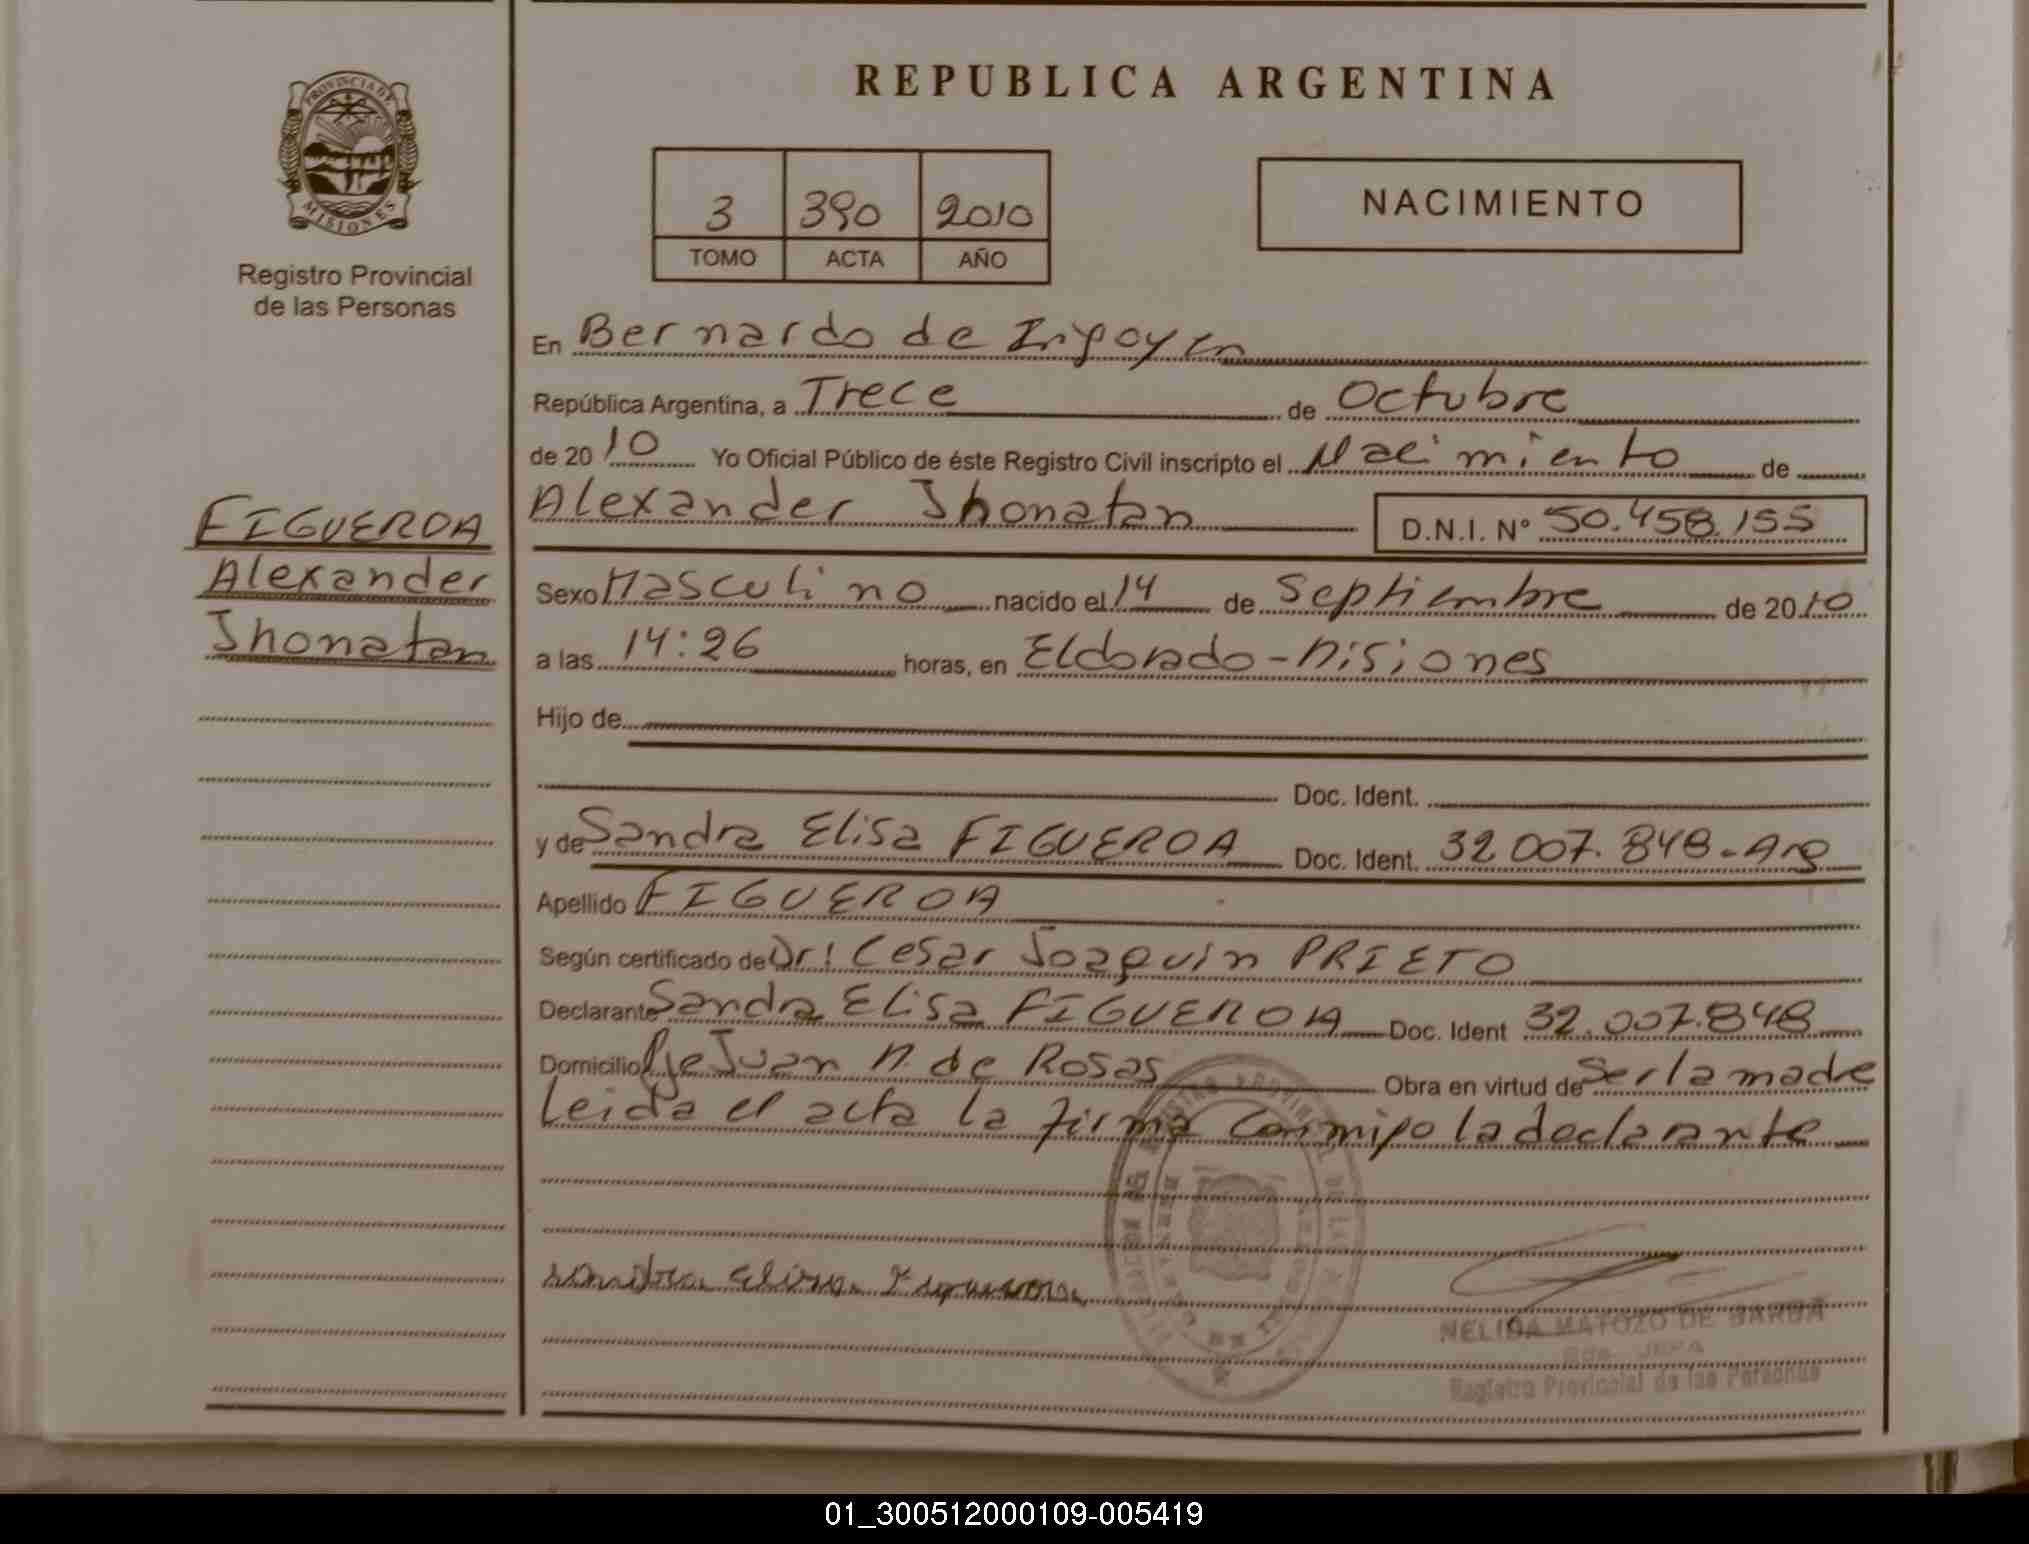 REPUBLICA ARGENTINA
PROVINCIA DE MISIONES
Registro Provincial
de las Personas
3 390 2010
TOMO ACTA AÑO
NACIMIENTO
En Bernardo de Irigoyen
República Argentina, a Trece de Octubre
de 2010 Yo Oficial Público de éste Registro Civil inscripto el Nacimiento de
Alexander Jhonatan D.N.I. Nº 50.458.155
FIGUEROA
Alexander
Jhonatan
Sexo Masculino nacido el 14 de Septiembre de 2010
a las 14:26 horas, en Eldorado - Misiones
Hijo de
Doc. Ident.
y de Sandra Elisa FIGUEROA Doc. Ident. 32.007.848 - Arg
Apellido FIGUEROA
Según certificado de Dr: Cesar Joaquin PRIETO
Declarante Sandra Elisa FIGUEROA Doc. Ident 32.007.848
Domicilio Pje Juan M. de Rosas Obra en virtud de Ser la madre
Leida el acta la firma conmigo la declarante
Sandra Elisa Figueroa
NELIDA MATOZO DE BARBA
JEFA
Registro Provincial de las Personas
01_300512000109-005419